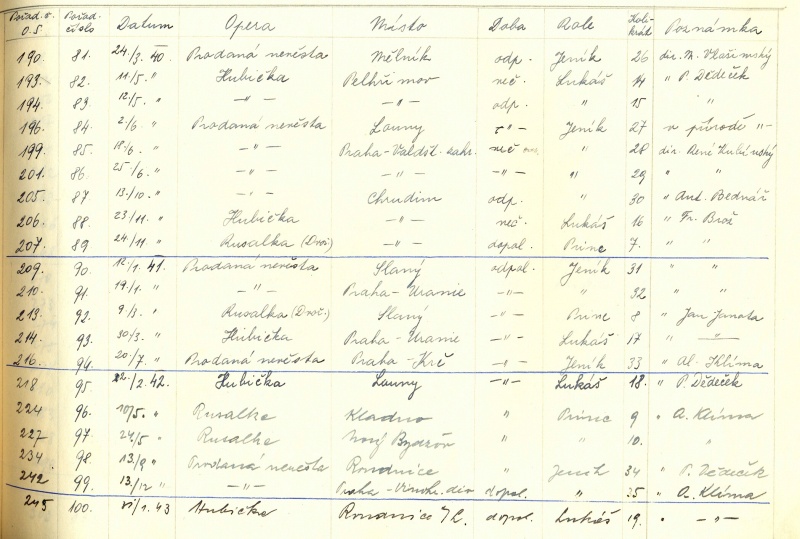 Pořad.č. O.S. Pořad. číslo Datum Opera Místo Doba Role Kolikrát Poznámka
190. 81. 24./3. 40. Prodaná nevěsta Mělník odp. Jeník 26 dir.
193. 82. 11/5. " Hubička Pelhřimov več. Lukáš 14 " P. Dědeček
194. 83. 12/5. " —"— —"— odp. " 15 " "
196. 84. 2/6. " Prodaná nevěsta Louny —"— Jeník 27 v přírodě "-
199. 85. 18/6. " —"— Praha-Valdšt. zahr. več " 28 dir. René Kubínský
201. 86. 25/6. " —"— —"— —"— " 29 " "
205. 87 13./10. " —"— Chrudim odp. " 30 " Ant. Bednář
206. 88. 23/11. " Hubička —"— več. Lukáš 16 " Fr. Brož
207. 89 24./11 " Rusalka (Dvoř.) —"— dopol. Princ 7. " "
209. 90. 12/1. 41. Prodaná nevěsta Slaný odpol. Jeník 31 " "
210. 91. 19/1. " —"— Praha-Uranie —"— " 32 " "
213. 92. 9/3. " Rusalka (Dvoř.) Slaný —"— Princ 8 " Jan Janota
214. 93. 30/3. " Hubička Praha-Uranie —"— Lukáš 17 " —"—
216. 94. 20/7. " Prodaná nevěsta Praha-Krč —"— Jeník 33 " Al. Klíma
218 95. 22./2. 42. Hubička Louny —"— Lukáš 18. " P. Dědeček
224 96. 10/5. " Rusalka Kladno " Princ 9 " A. Klíma
227 97. 24/5 " Rusalka Nový Bydžov " " 10. " "
234 98. 13/9 " Prodaná nevěsta Roudnice " Jeník 34 " P. Dědeček
242 99. 13/12 " —"— Praha-Vinohr. div dopol. " 35 " A. Klíma
245 100. /1. 43 Hubička Roudnice n/L. dopol. Lukáš 19. " —"—